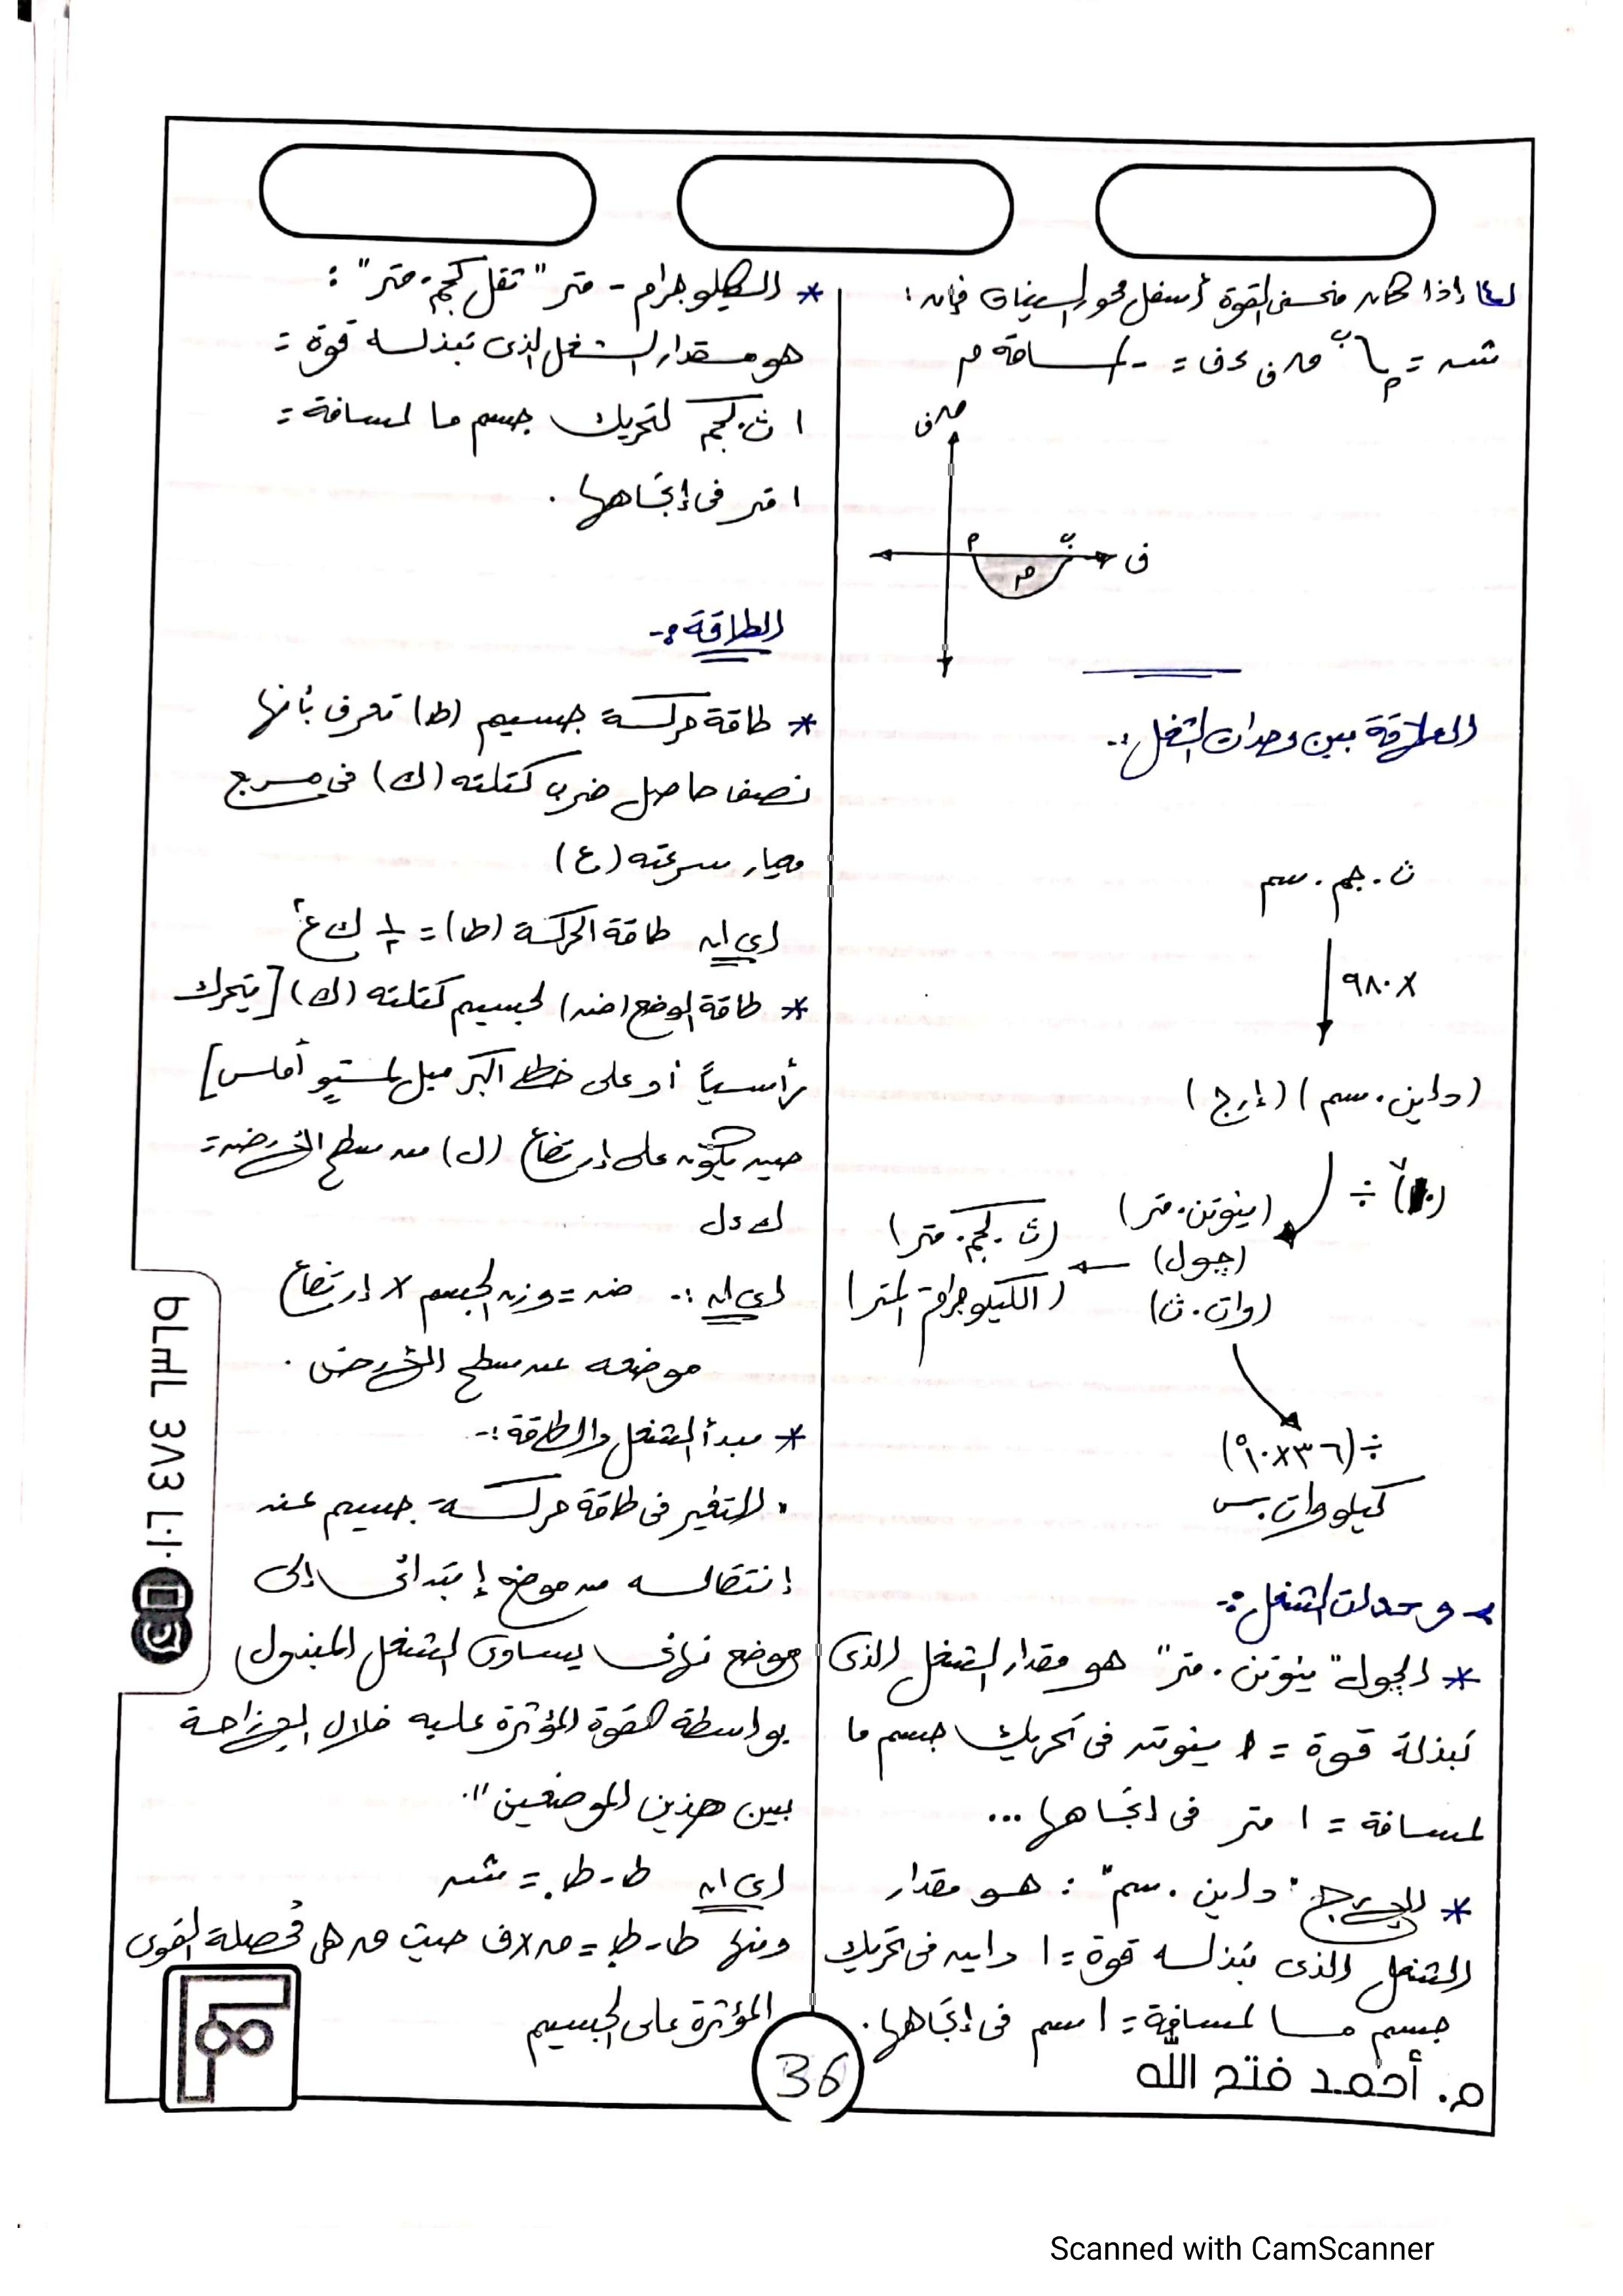 إذا كان منحنى القوة أسفل محور السينات فإن:
شـ = م∫ب ق ء ف = - مساحة م
ق
ف
ب
م
م
العلاقة بين وحدات الشغل:-
ث. جم. سم
× ٩٨٠
(داين. سم) (إرج)
÷ (١٠)٧
(نيوتن. متر)
(جول)
(وات. ث)
(ث. كجم. متر)
(الكيلوجرام المتر)
÷ (٣٦×١٠٥)
كيلووات. س
وحدات الشغل:-
* الجول "نيوتن. متر" هو مقدار الشغل الذى
تبذلة قوة = ١ نيوتن فى تحريك جسم ما
لمسافة = ١ متر فى اتجاهها ...
* الإرج "داين. سم": هو مقدار
الشغل الذى تبذله قوة = ١ داين فى تحريك
جسم ما لمسافة = ١ سم فى إتجاهها.
* الكيلوجرام - متر "ثقل كجم. متر":
هو مقدار الشغل الذى تبذله قوة =
١ ث. كجم لتحريك جسم ما لمسافة =
١ متر فى إتجاهها.
الطاقة:-
* طاقة حركة جسيم (ط) تعرف بأنها
نصف حاصل ضرب كتلته (ك) فى مربع
معيار سرعته (ع)
اى ان طاقة الحركة (ط) = ١/٢ ك ع٢
* طاقة الوضع (ضـ) لجسيم كتلته (ك) [يتحرك
رأسياً أو على خط اكبر ميل لمستوٍ أملس]
حين يكون على إرتفاع (ل) من سطح الأرض =
ك ء ل
اى ان:- ضـ = وزن الجسم × إرتفاع
موضعه عن سطح الأرض.
* مبدأ الشغل والطاقة:-
"التغير فى طاقة حركة جسيم عند
إنتقاله من موضع إبتدائى إلى
موضع نهائى يساوى الشغل المبذول
بواسطة القوة المؤثرة عليه خلال الإزاحة
بين هذين الموضعين".
اى ان ط - ط. = شـ
ومنها ط - ط. = ق × ف حيث ق هى محصلة القوى
المؤثرة على الجسيم
٠١٠٦ ٤٨٣ ٦٣٦٩
36
م. أحمد فتح الله
Scanned with CamScanner